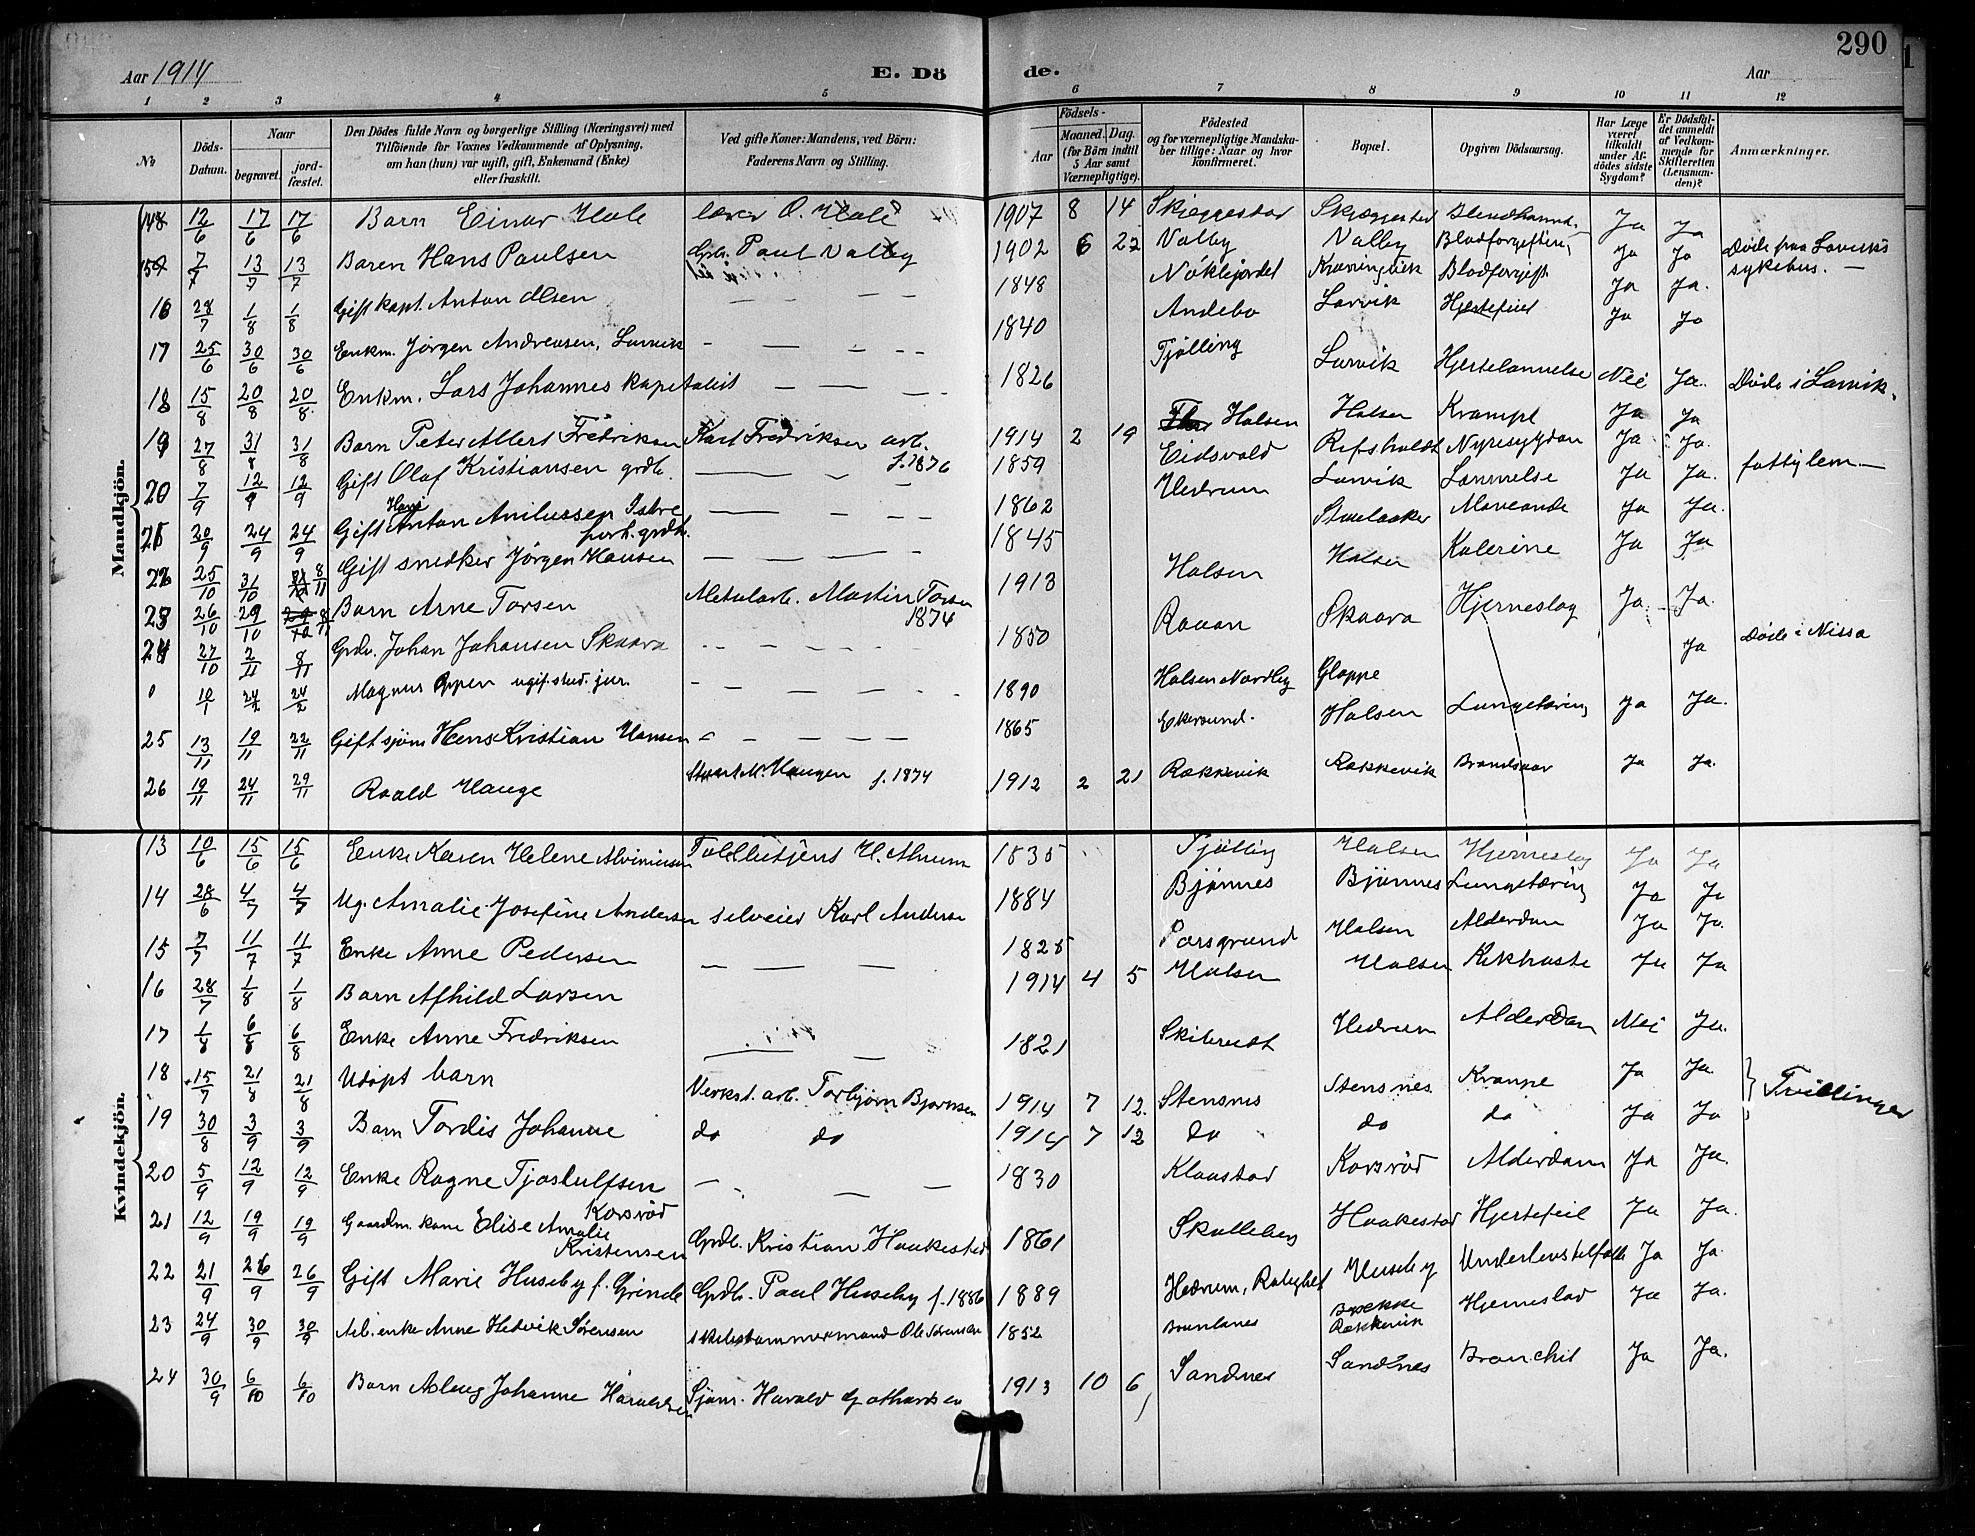 290
Aar 1914 E. Dö de. Aar
1 2 3 4 5 6 7 8 9 10 11 12
No Döds-Datum. Naar begravet. jord-fæstet. Den Dödes fulde Navn og borgerlige Stilling (Næringsvei) med Tilföiende for Voxnes Vedkommende af Oplysning, om han (hun) var ugift, gift, Enkemand (Enke) eller fraskilt. Ved gifte Koner: Mandens, ved Börn: Faderens Navn og Stilling. Födsels- Aar Maaned. Dag. (for Börn indtil 5 Aar samt Værnepligtige). Födested og for værnepligtige Mandskaber tillige: Naar og hvor konfirmeret. Bopæl. Opgiven Dödsaarsag. Har Læge været tilkaldt under Afdödes sidste Sygdom? Er Dödsfaldet anmeldt af Vedkommende for Skifteretten (Lensmanden)? Anmærkninger.
Mandkjön.
14 12/6 17/6 17/6 Barn Einar Hole lærer O. Hole 1907 8 14 Skjeggestad Skjeggestad Ja Ja
15 7/7 13/7 13/7 Baren Hans Paulsen Grdr. Paul Valby 1902 6 22 Valby Valby Blodforgiftning Ja Ja Døde paa Larviks sykehus. —
16 28/7 1/8 1/8 Gift kapt. Anton Olsen — — — — 1848 Nøklejordet Blodforgift. Ja Ja.
17 25/6 30/6 30/6 Enkm. Jørgen Andreasen, Larvik - — — -- 1840 Andebo Larvik Hjertefeil Ja Ja
18 15/8 20/8 20/8 Enkm. Lars Johannes kapitalist — — -- 1826 Tjølling Larvik Hjertelammelse Nei Ja. Døde i Larvik.
19 27/8 31/8 31/8 Barn Peter Albert Fredriksen Karl Fredriksen arb. f. 1876 1914 2 19 Halsen Halsen Krampe Ja Ja
20 7/9 12/9 12/9 Gift Olaf Kristiansen grdb. — — — 1859 Eidsvold Refsholdt Nyresygdom Ja Ja. fattiglem —
21 20/9 24/9 24/9 Gift Hans Anton Anilussen Istre — — - - 1862 Hedrum Larvik Lammelse Ja Ja.
22 25/10 31/10 8/11 Gift snedker Jørgen Hansen — — — — 1845 Ja Ja.
23 26/10 29/10 8/11 Barn Arne Torsen Metalarb. Martin Torsen 1874 1913 Halsen Halsen Ja Ja
24 27/10 2/11 8/11 Grdb. Johan Johansen Skaara - - - - - 1850 Skaara Hjerneslag Ja Ja.
0 10/1 24/2 24/2 Magnus Oppen ugif. stud. jur. - — — — - - 1890 Halsen Nordby Gloppe Ja Døde i Nissa
25 13/11 19/11 22/11 Gift sjøm Hans Kristian Hansen - — — — 1865 Ekersund. Halsen Lungetæring Ja Ja.
26 19/11 24/11 29/11 Roald Hauge f. 1874 1912 2 21 Rækkevik Rækkevik Brandsaar Ja Ja.
Kvindekjön.
13 10/6 15/6 15/6 Enke Karen Helene 1835 Tjølling Halsen Hjerneslag Ja Ja
14 28/6 4/7 4/7 Ug. Amalie Josefine Andersen selveier Karl Andersen 1884 Bjønnes Bjønnes Lungetæring Ja Ja
15 7/7 11/7 11/7 Enke Anne Pedersen — — — 1825 Porsgrund Halsen Alderdom Ja Ja.
16 28/7 1/8 1/8 Barn Afhild Larsen 1914 4 5 Halsen Halsen Kikhoste Ja Ja
17 1/8 6/8 6/8 Enke Anne Fredriksen — — 1821 Hedrum Alderdom Nei Ja.
18 15/7 21/8 21/8 Udøpt barn Verkst. arb. Torbjørn Bjørnsen 1914 7 12. Stensnes Stensnes Krampe Ja Ja. } Tvillinger
19 30/8 3/9 3/9 Barn Tordis Johanne do do 1914 7 12 do do do Ja Ja
20 5/9 12/9 12/9 Enke Ragne Tjostulfsen Korsrød — - — — 1830 Klaastad Korsrød Alderdom Ja Ja.
21 12/9 19/9 19/9 Gaardm. kone Elise Amalie Kristensen Grdb. Kristian Haakestad 1861 Skalleberg Haakestad Hjertefeil Ja Ja.
22 21/9 26/9 26/9 Gift Marie Huseby f. Grinde Grdb. Paul Huseby f. 1886 1889 Hedrum, Huseby Ja Ja.
23 24/9 30/9 30/9 enke Anne Hedvik Sørensen skibstømmermand Ole Sørensen 1852 Brunlanes Brekke Rækkevik Hjerneslag Ja Ja.
24 30/9 6/10 6/10 Barn Aslaug Johanne Haraldsen Sjøm. Harald Gothardsen 1913 10 6 Sandnes Sandnes Bronchit Ja Ja.